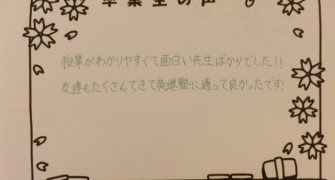 卒業生の声
授業がわかりやすくて面白い先生ばかりでした!!
友達もたくさんできて英進塾に通って良かったです!